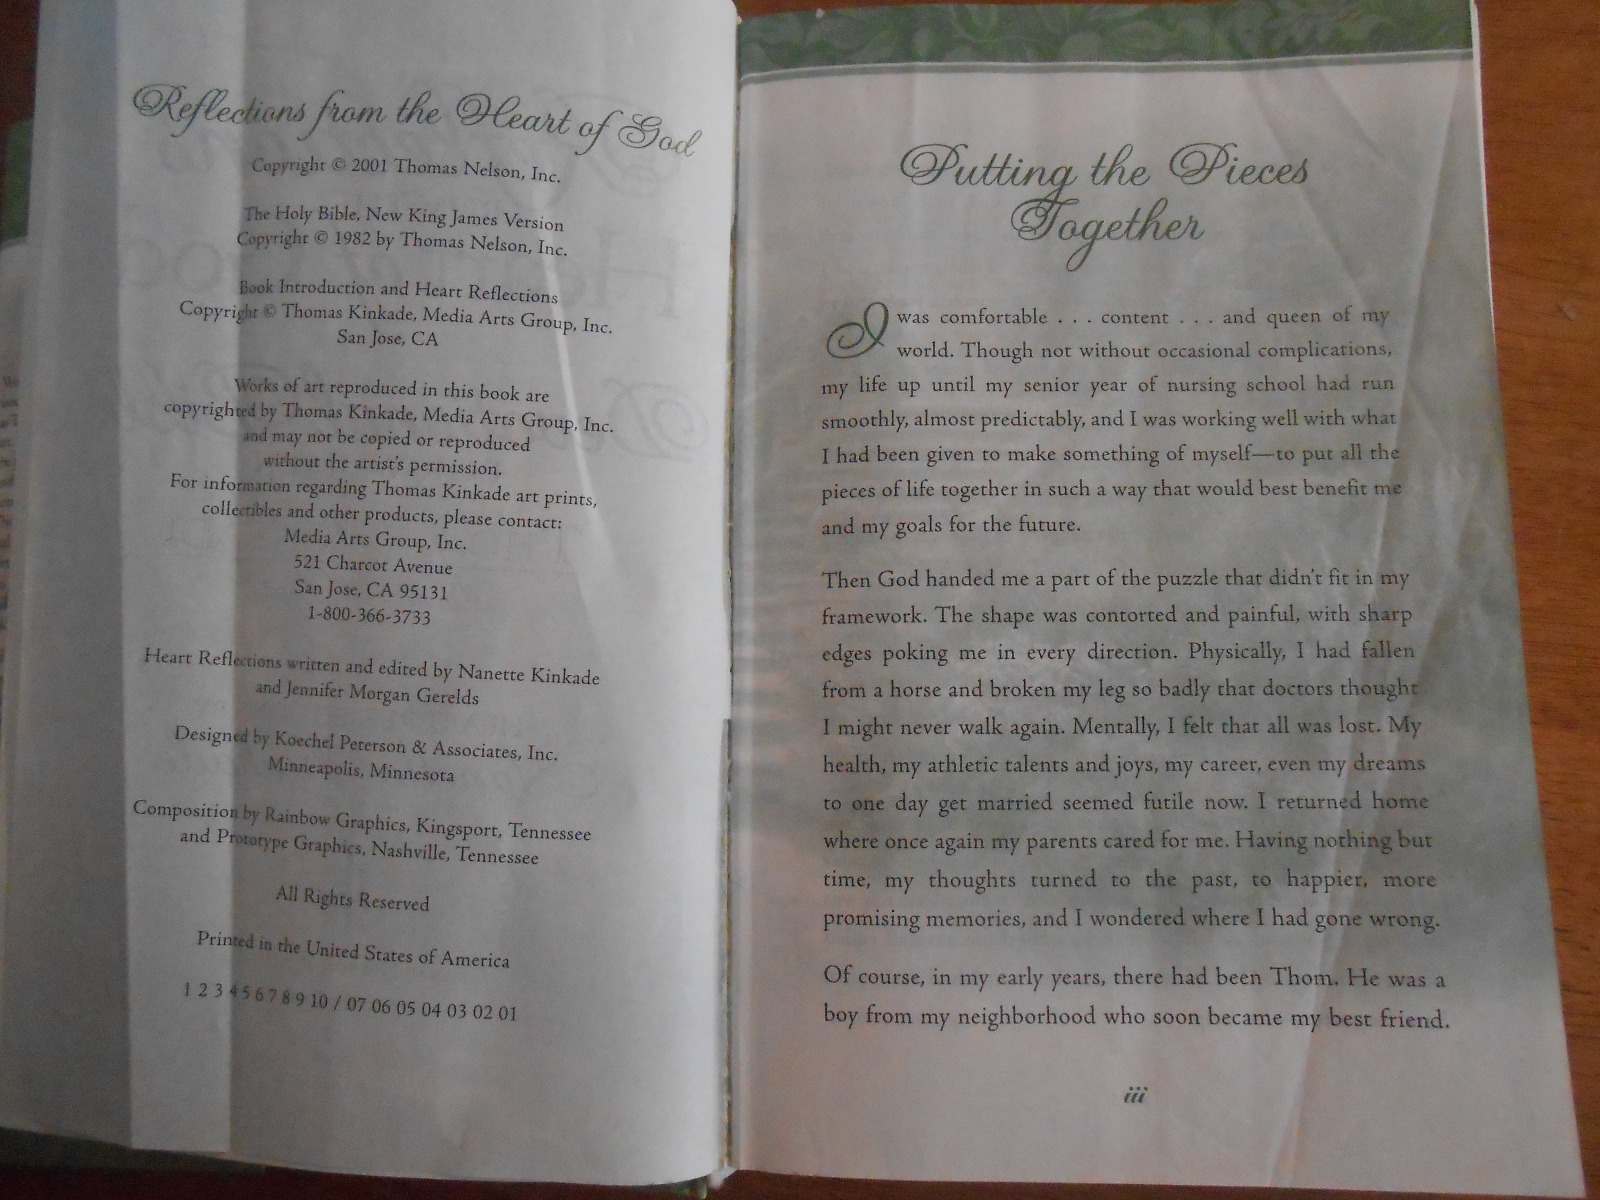 Reflections from the Heart of God
Copyright © 2001 Thomas Nelson, Inc.
The Holy Bible, New King James Version
Copyright © 1982 by Thomas Nelson, Inc.
Book Introduction and Heart Reflections
Copyright © Thomas Kinkade, Media Arts Group, Inc.
San Jose, CA
Works of art reproduced in this book are
copyrighted by Thomas Kinkade, Media Arts Group, Inc.
and may not be copied or reproduced
without the artist's permission.
For information regarding Thomas Kinkade art prints,
collectibles and other products, please contact:
Media Arts Group, Inc.
521 Charcot Avenue
San Jose, CA 95131
1-800-366-3733
Heart Reflections written and edited by Nanette Kinkade
and Jennifer Morgan Gerelds
Designed by Koechel Peterson & Associates, Inc.
Minneapolis, Minnesota
Composition by Rainbow Graphics, Kingsport, Tennessee
and Prototype Graphics, Nashville, Tennessee
All Rights Reserved
Printed in the United States of America
1 2 3 4 5 6 7 8 9 10 / 07 06 05 04 03 02 01
Putting the Pieces
Together
I was comfortable . . . content . . . and queen of my
world. Though not without occasional complications,
my life up until my senior year of nursing school had run
smoothly, almost predictably, and I was working well with what
I had been given to make something of myself—to put all the
pieces of life together in such a way that would best benefit me
and my goals for the future.
Then God handed me a part of the puzzle that didn't fit in my
framework. The shape was contorted and painful, with sharp
edges poking me in every direction. Physically, I had fallen
from a horse and broken my leg so badly that doctors thought
I might never walk again. Mentally, I felt that all was lost. My
health, my athletic talents and joys, my career, even my dreams
to one day get married seemed futile now. I returned home
where once again my parents cared for me. Having nothing but
time, my thoughts turned to the past, to happier, more
promising memories, and I wondered where I had gone wrong.
Of course, in my early years, there had been Thom. He was a
boy from my neighborhood who soon became my best friend.
iii